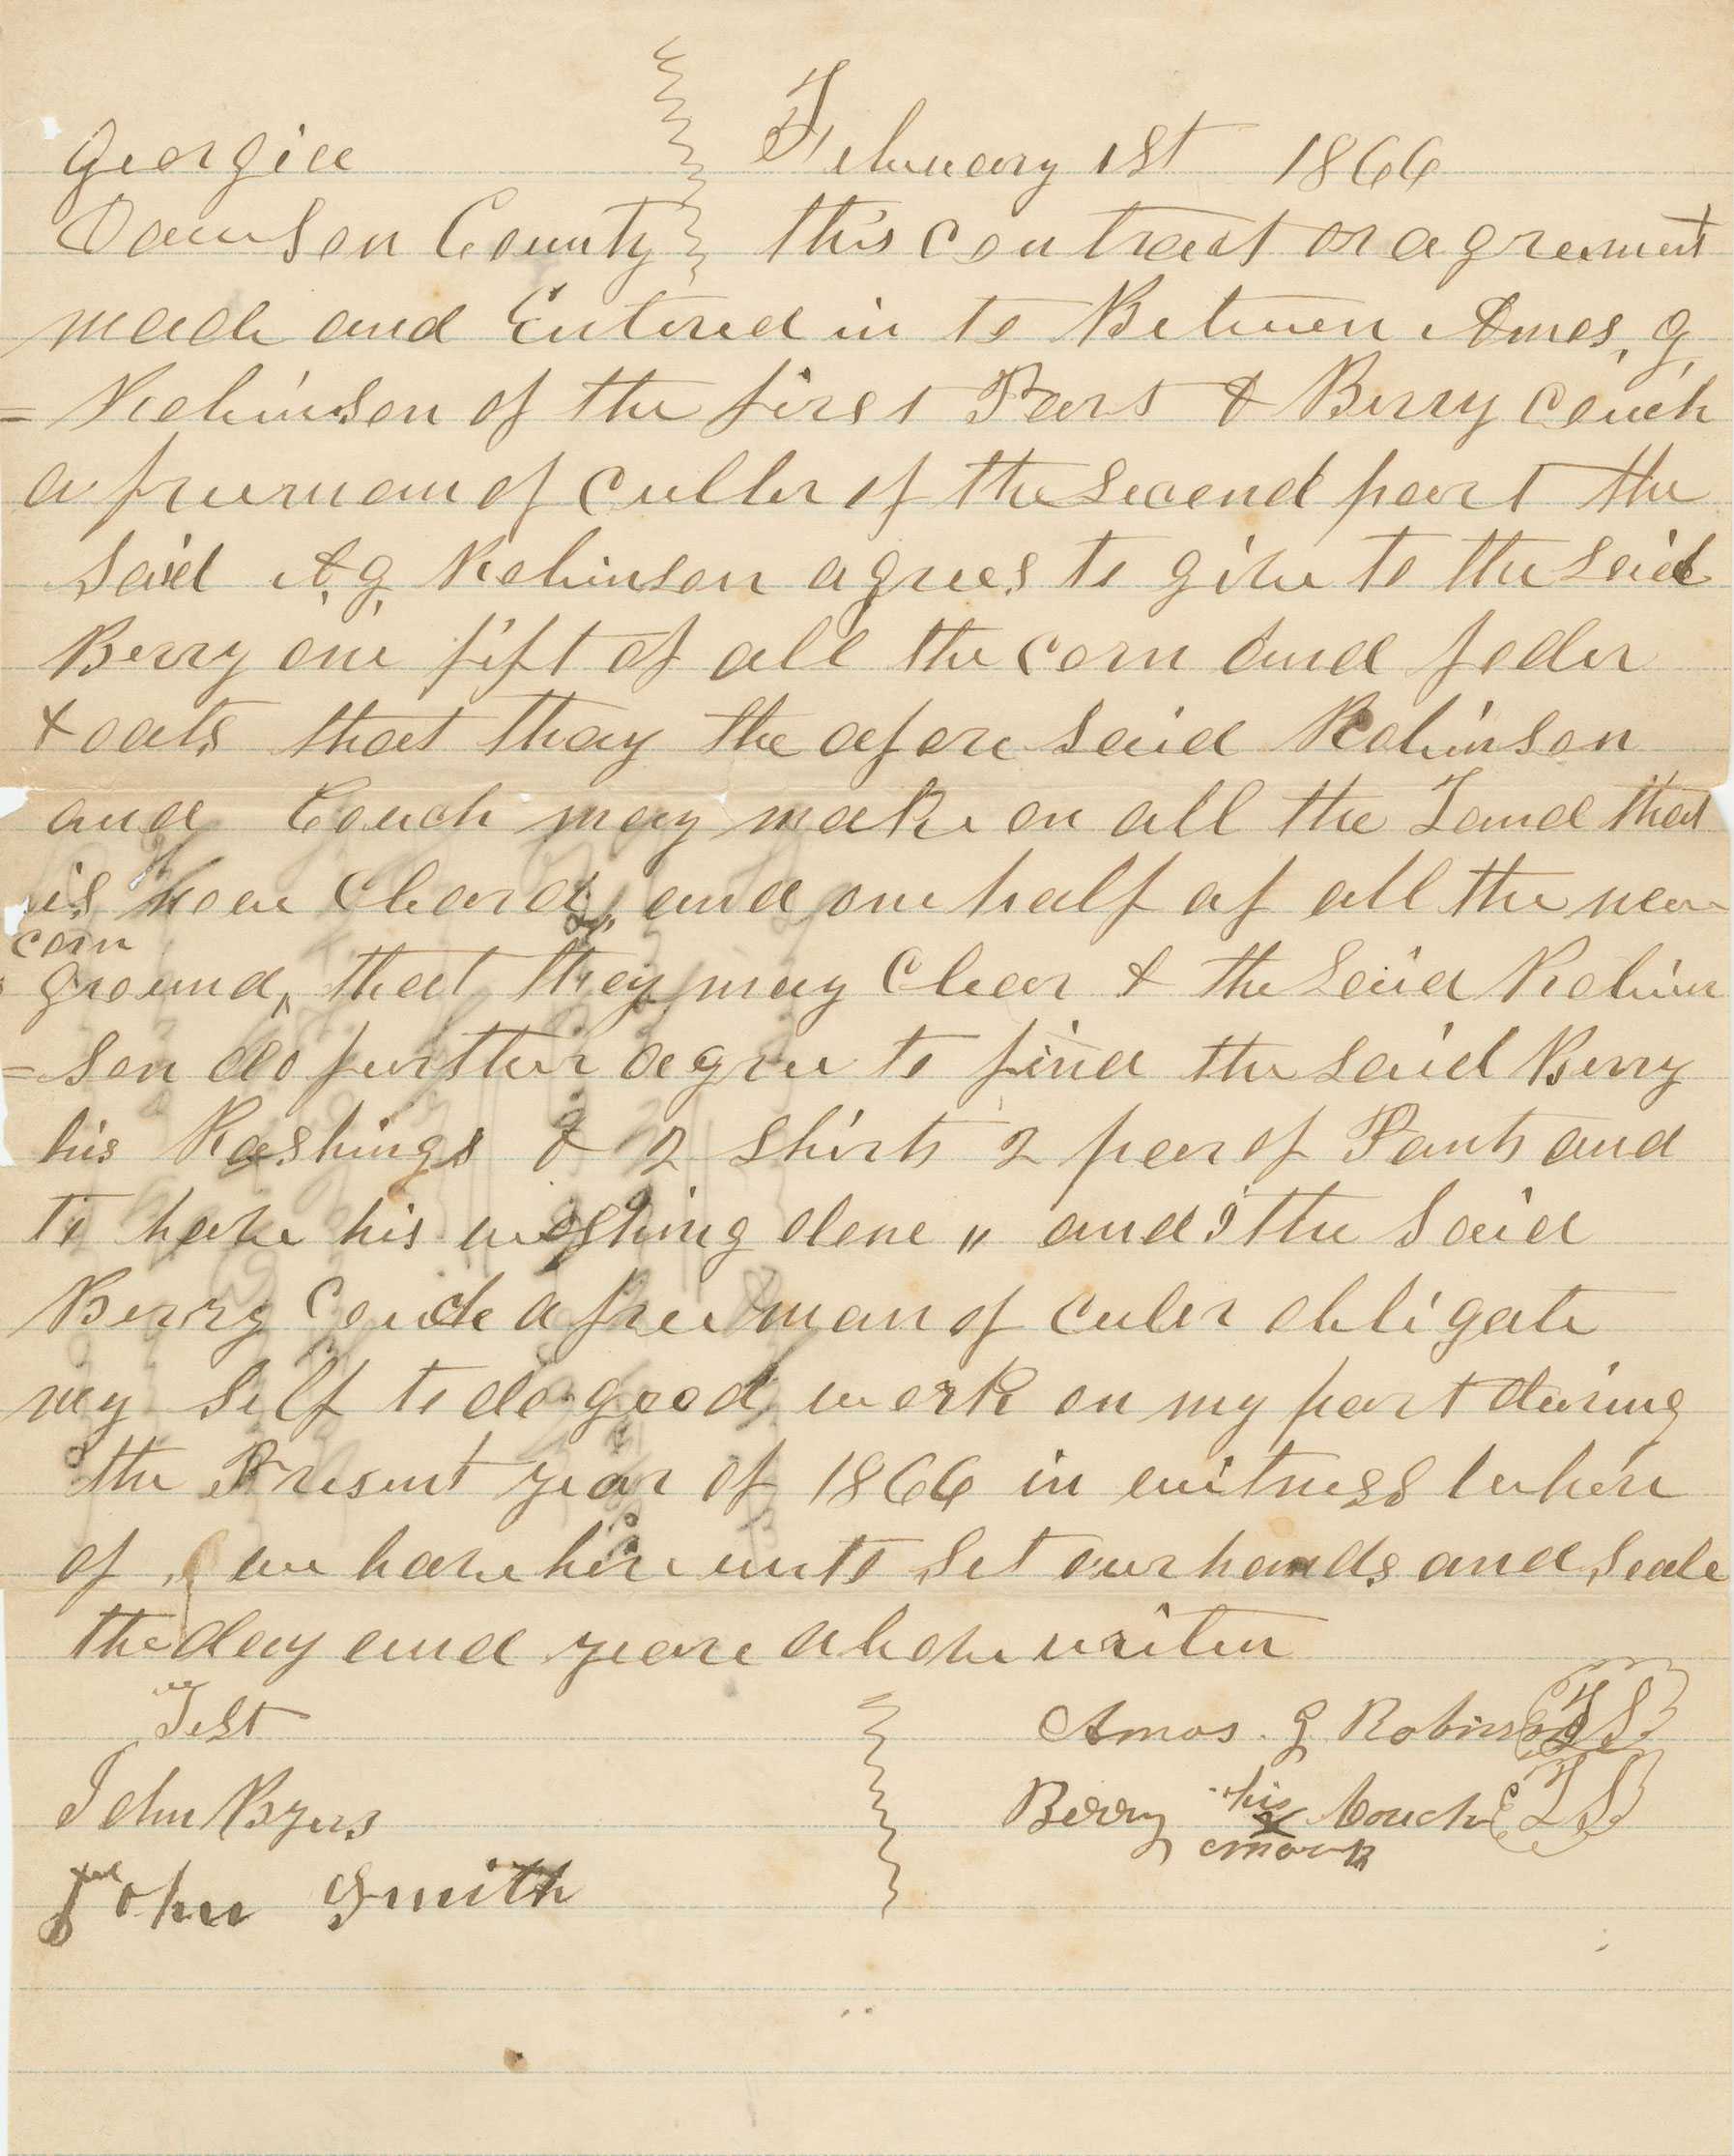 Georgia February 1st 1866
Dawson County this contract or agreement
made and Entered in to Between Amos, G,
= Robinson of the first Part & Berry Couch
a freeman of culler of the second part the
said A, G, Robinson agrees to give to the said
Berry one fift of all the corn and foder
& oats that thay the afore said Robinson
and Couch may make on all the Land that
is now cleard, and one half of all the new
corn
ground, that they may clear & the said Robin
= son do further agree to find the said Berry
his Rashings & 2 shirts 2 pear of Pants and
to have his washing done " and I the said
Berry Couch a free man of culer obligate
my self to do good work on my part during
the Present year of 1866 in witness wher
of we have here unto set our hands and seale
the day and yeare above writen
Test Amos. G Robinson LS
John Byers Berry his X mark Couch LS
John Smith